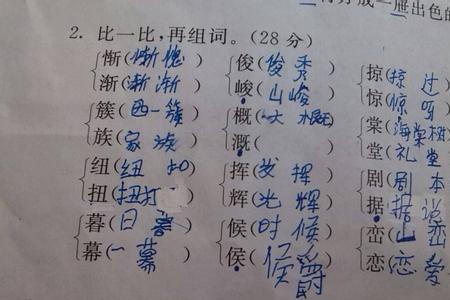 成一册出色的
2. 比一比,再组词。(28分)
惭(惭愧) 俊(俊秀) 掠(掠过
渐(渐渐) 峻(山峻) 惊(惊呀
簇(西一簇) 概(大概) 棠(海棠树
族(家族) 溉( ) 堂(礼堂
纽(纽扣) 挥(发挥) 剧(剧本
扭(扭打) 辉(光辉) 据(据说
暮(日暮) 候(时候) 峦(山峦
幕(一幕) 侯(侯爵) 恋(恋爱